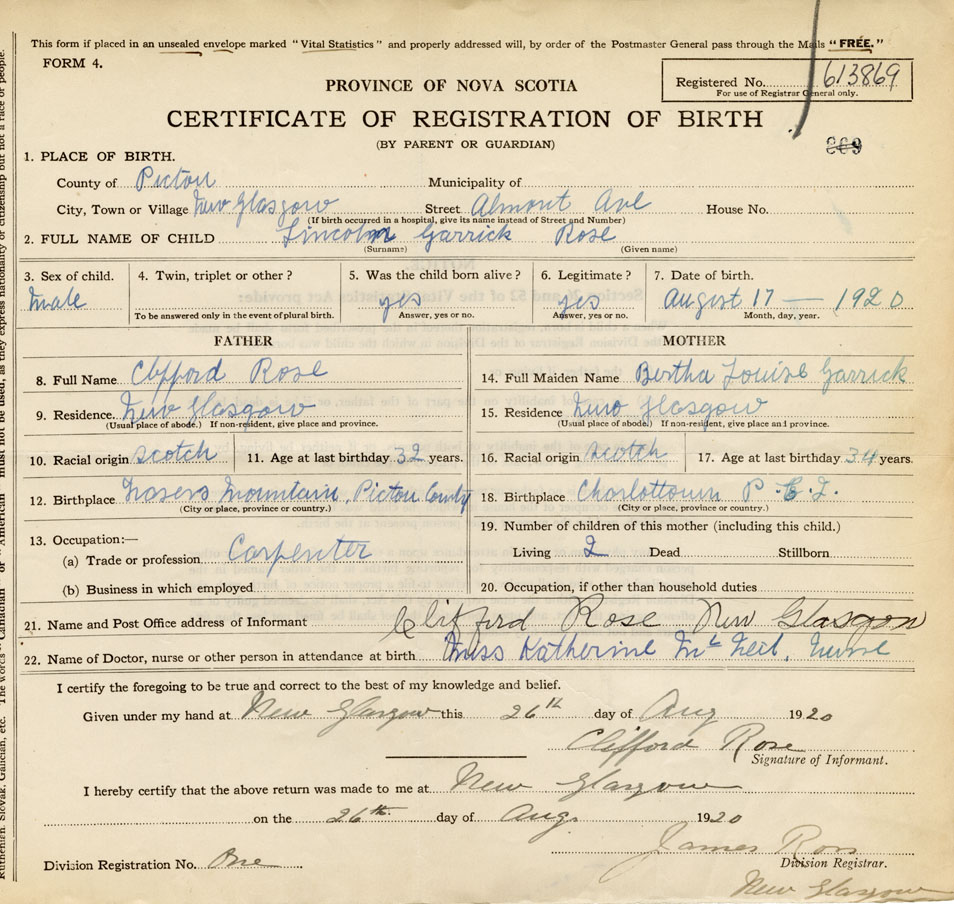 This form if placed in an unsealed envelope marked "Vital Statistics" and properly addressed will, by order of the Postmaster General pass through the Mails "FREE."
FORM 4.
Registered No. 613869
For use of Registrar General only.
PROVINCE OF NOVA SCOTIA
CERTIFICATE OF REGISTRATION OF BIRTH
(BY PARENT OR GUARDIAN)
869
1. PLACE OF BIRTH.
County of Pictou Municipality of
City, Town or Village New Glasgow Street Almont Ave House No.
(If birth occurred in a hospital, give its name instead of Street and Number)
2. FULL NAME OF CHILD Lincoln Garrick Rose
(Surname) (Given name)
3. Sex of child. 4. Twin, triplet or other? 5. Was the child born alive? 6. Legitimate? 7. Date of birth.
Male yes yes August 17 — 1920
To be answered only in the event of plural birth. Answer, yes or no. Answer, yes or no. Month, day, year.
FATHER MOTHER
8. Full Name Clifford Rose 14. Full Maiden Name Bertha Louise Garrick
9. Residence New Glasgow 15. Residence New Glasgow
(Usual place of abode.) If non-resident, give place and province. (Usual place of abode.) If non-resident, give place and province.
10. Racial origin Scotch 11. Age at last birthday 32 years. 16. Racial origin Scotch 17. Age at last birthday 34 years.
12. Birthplace Frasers Mountain, Pictou County 18. Birthplace Charlottown P.E.I.
(City or place, province or country.) (City or place, province or country.)
19. Number of children of this mother (including this child.)
13. Occupation:—
(a) Trade or profession Carpenter Living 2 Dead Stillborn
(b) Business in which employed 20. Occupation, if other than household duties
21. Name and Post Office address of Informant Clifford Rose New Glasgow
22. Name of Doctor, nurse or other person in attendance at birth Miss Katherine McNeil, Nurse
I certify the foregoing to be true and correct to the best of my knowledge and belief.
Given under my hand at New Glasgow this 26th day of Aug 1920
Clifford Rose
Signature of Informant.
I hereby certify that the above return was made to me at New Glasgow
on the 26th day of Aug. 1920
James Ross
Division Registration No. One Division Registrar.
New Glasgow